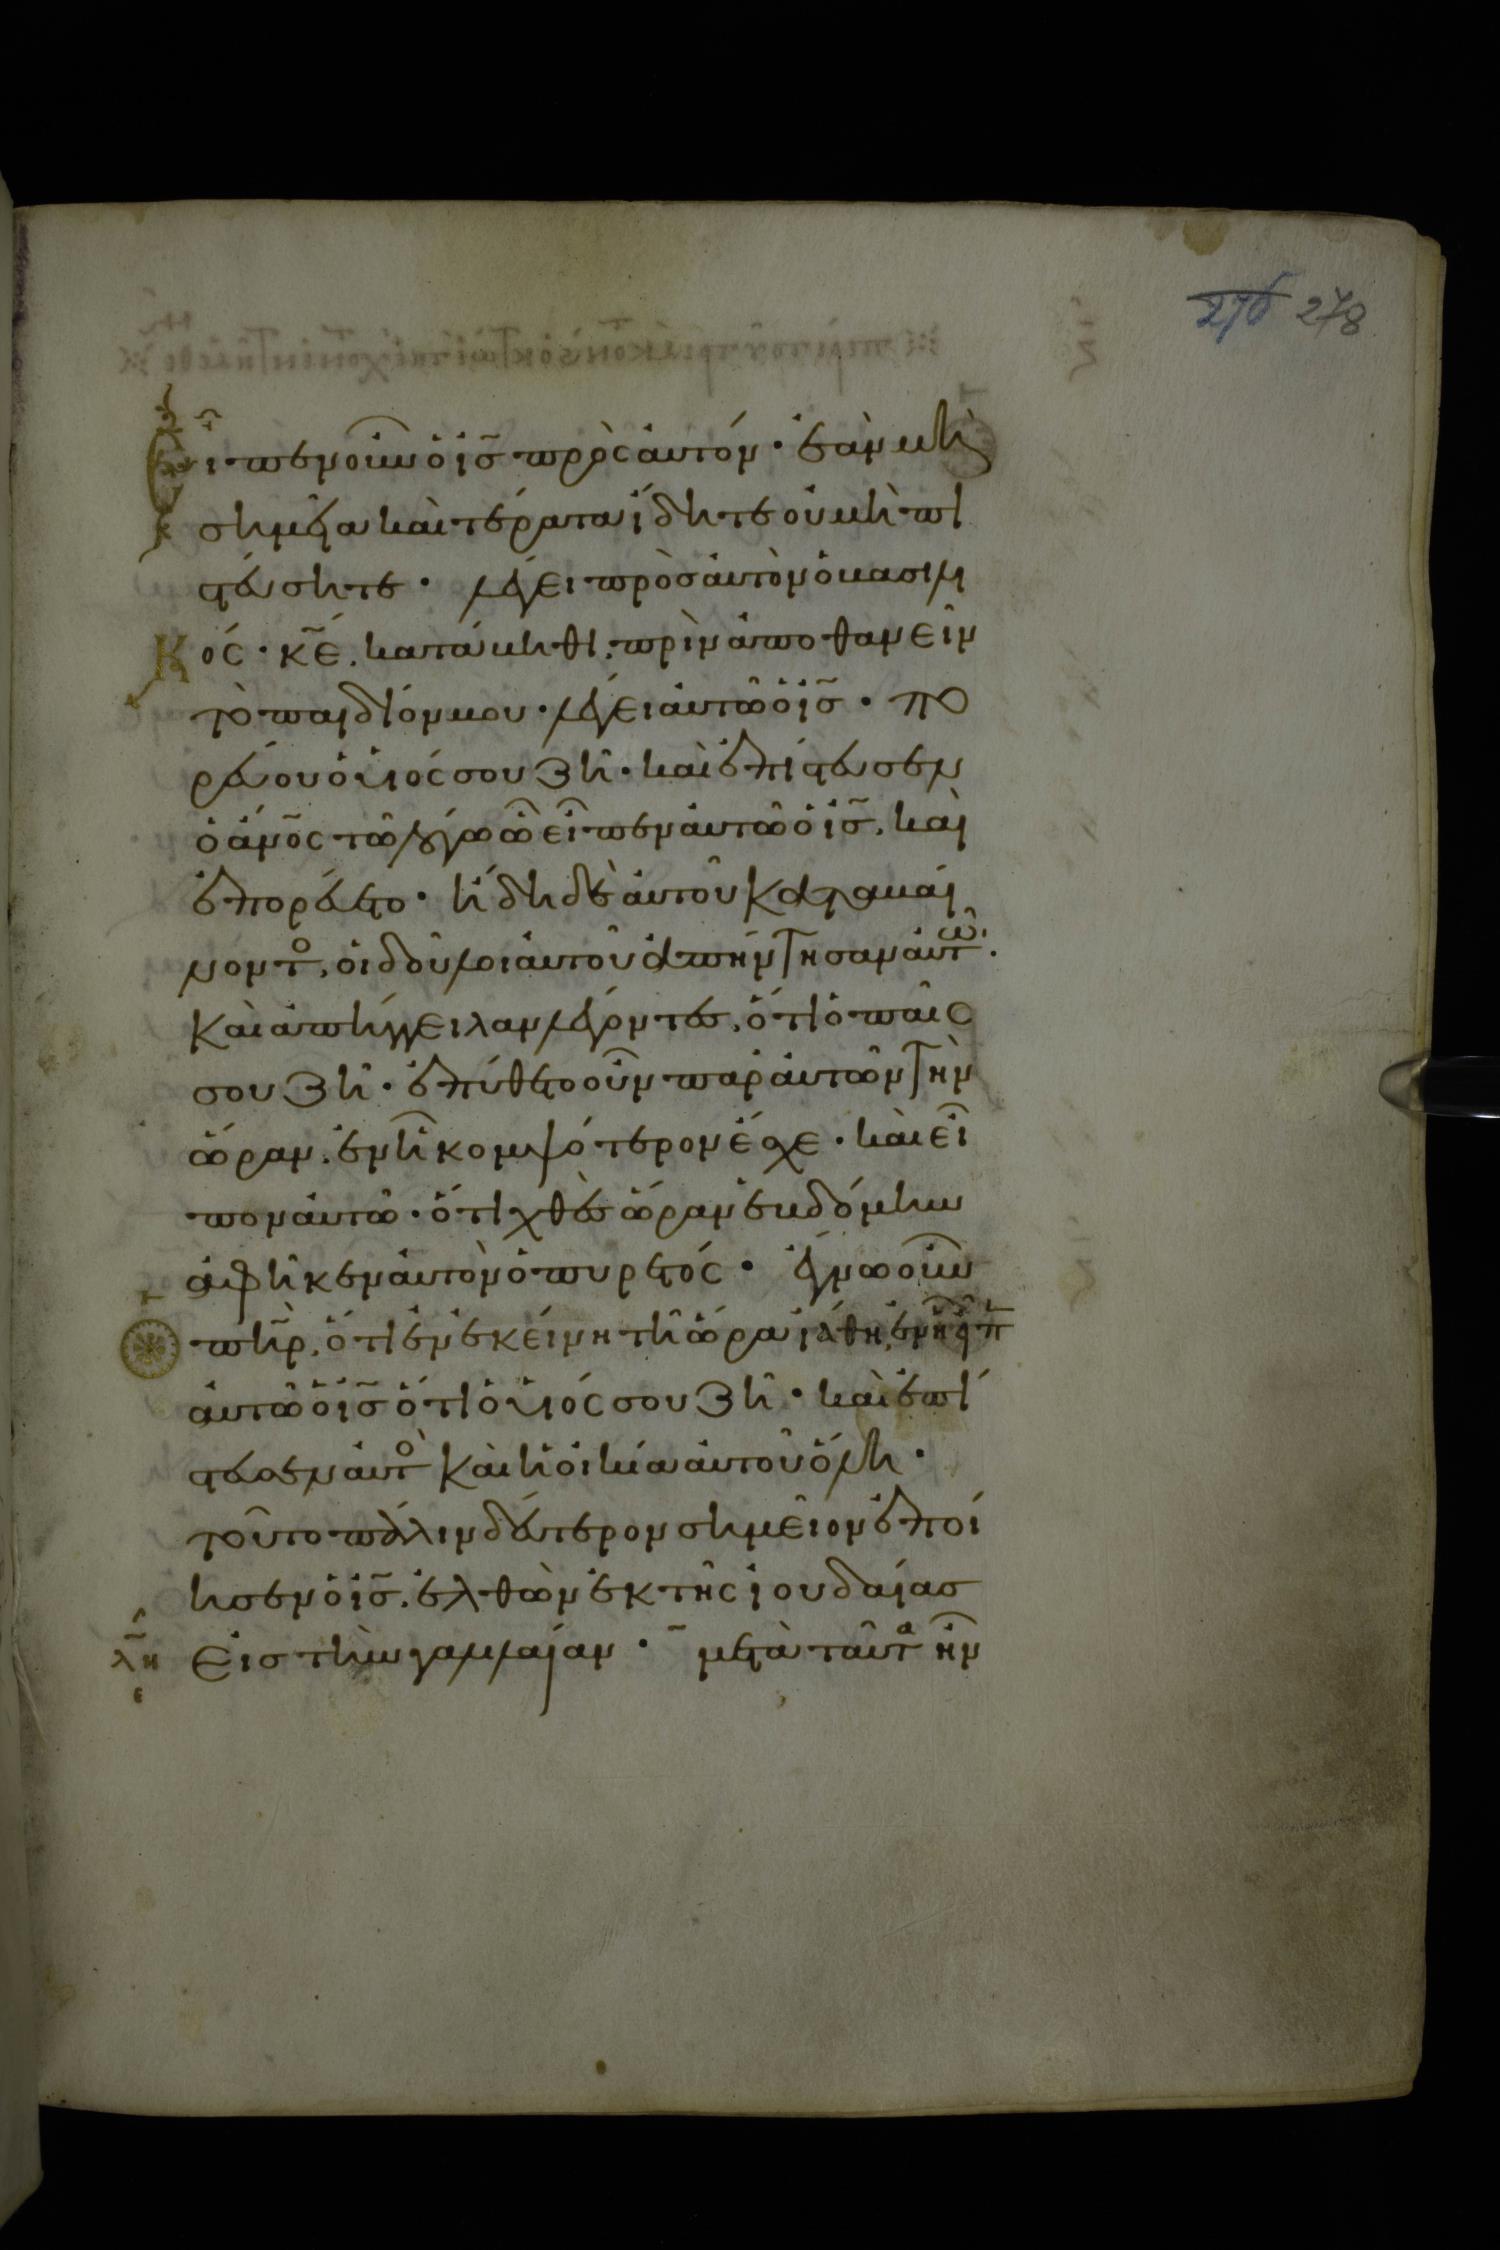 276 278
Εἶπεν οὖν ὁ ἰς̄ πρὸς ἀυτόν· ἐὰν μὴ
σημεῖα καὶ τέρατα ἴδητε οὐ μὴ πι
στεύσητε· λέγει πρὸσ ἀυτὸν ὁ βασιλι
κός· κ̄ε̄, κατάβηθι, πρὶν ἀποθανεῖν
τὸ παιδίον μου· λέγει ἀυτῶ ὁ ἰς̄· πο
ρεύου ὁ υἱός σου ζῆ· καὶ ἐπίστευσεν
ὁ ἄν̄ος τῶ λόγω ὧ εἶπεν ἀυτῶ ὁ ἰς̄, καὶ
ἐπορεύετο· ἤδη δὲ ἀυτοῦ καταβαί
νοντο, οἱ δοῦλοι ἀυτοῦ ἀπήντησαν ἀυτῶ·
Καὶ ἀπήγγειλαν λέγοντες, ὅτι ὁ παῖς
σου ζῆ· ἐπύθετο οὖν παρ ἀυτῶν τὴν
ὥραν, ἐν ῇ κομψότερον ἔσχε· καὶ εἶ
πον ἀυτῶ· ὅτι χθὲς ὥραν ἑβδόμην
ἀφῆκεν ἀυτὸν ὁ πυρετός· ἔγνω οὖν
ὁ πη̄ρ, ὅτι ἐν ἐκείνη τῆ ὥρα ἰάθη, ἐν ῇ εἶπ
ἀυτῶ ὁ ἰς̄ ὅτι ὁ υἱός σου ζῆ· καὶ ἐπί
στευσεν ἀυτὸ καὶ ἡ οἰκία ἀυτοῦ ὅλη·
τοῦτο πάλιν δεύτερον σημεῖον ἐποί
ησεν ὁ ἰς̄, ἐλθὼν ἐκ τῆς ἰουδαίασ
λη Εἰσ τὴν γαλιλαίαν· μετὰ ταῦτα ἦν
ε